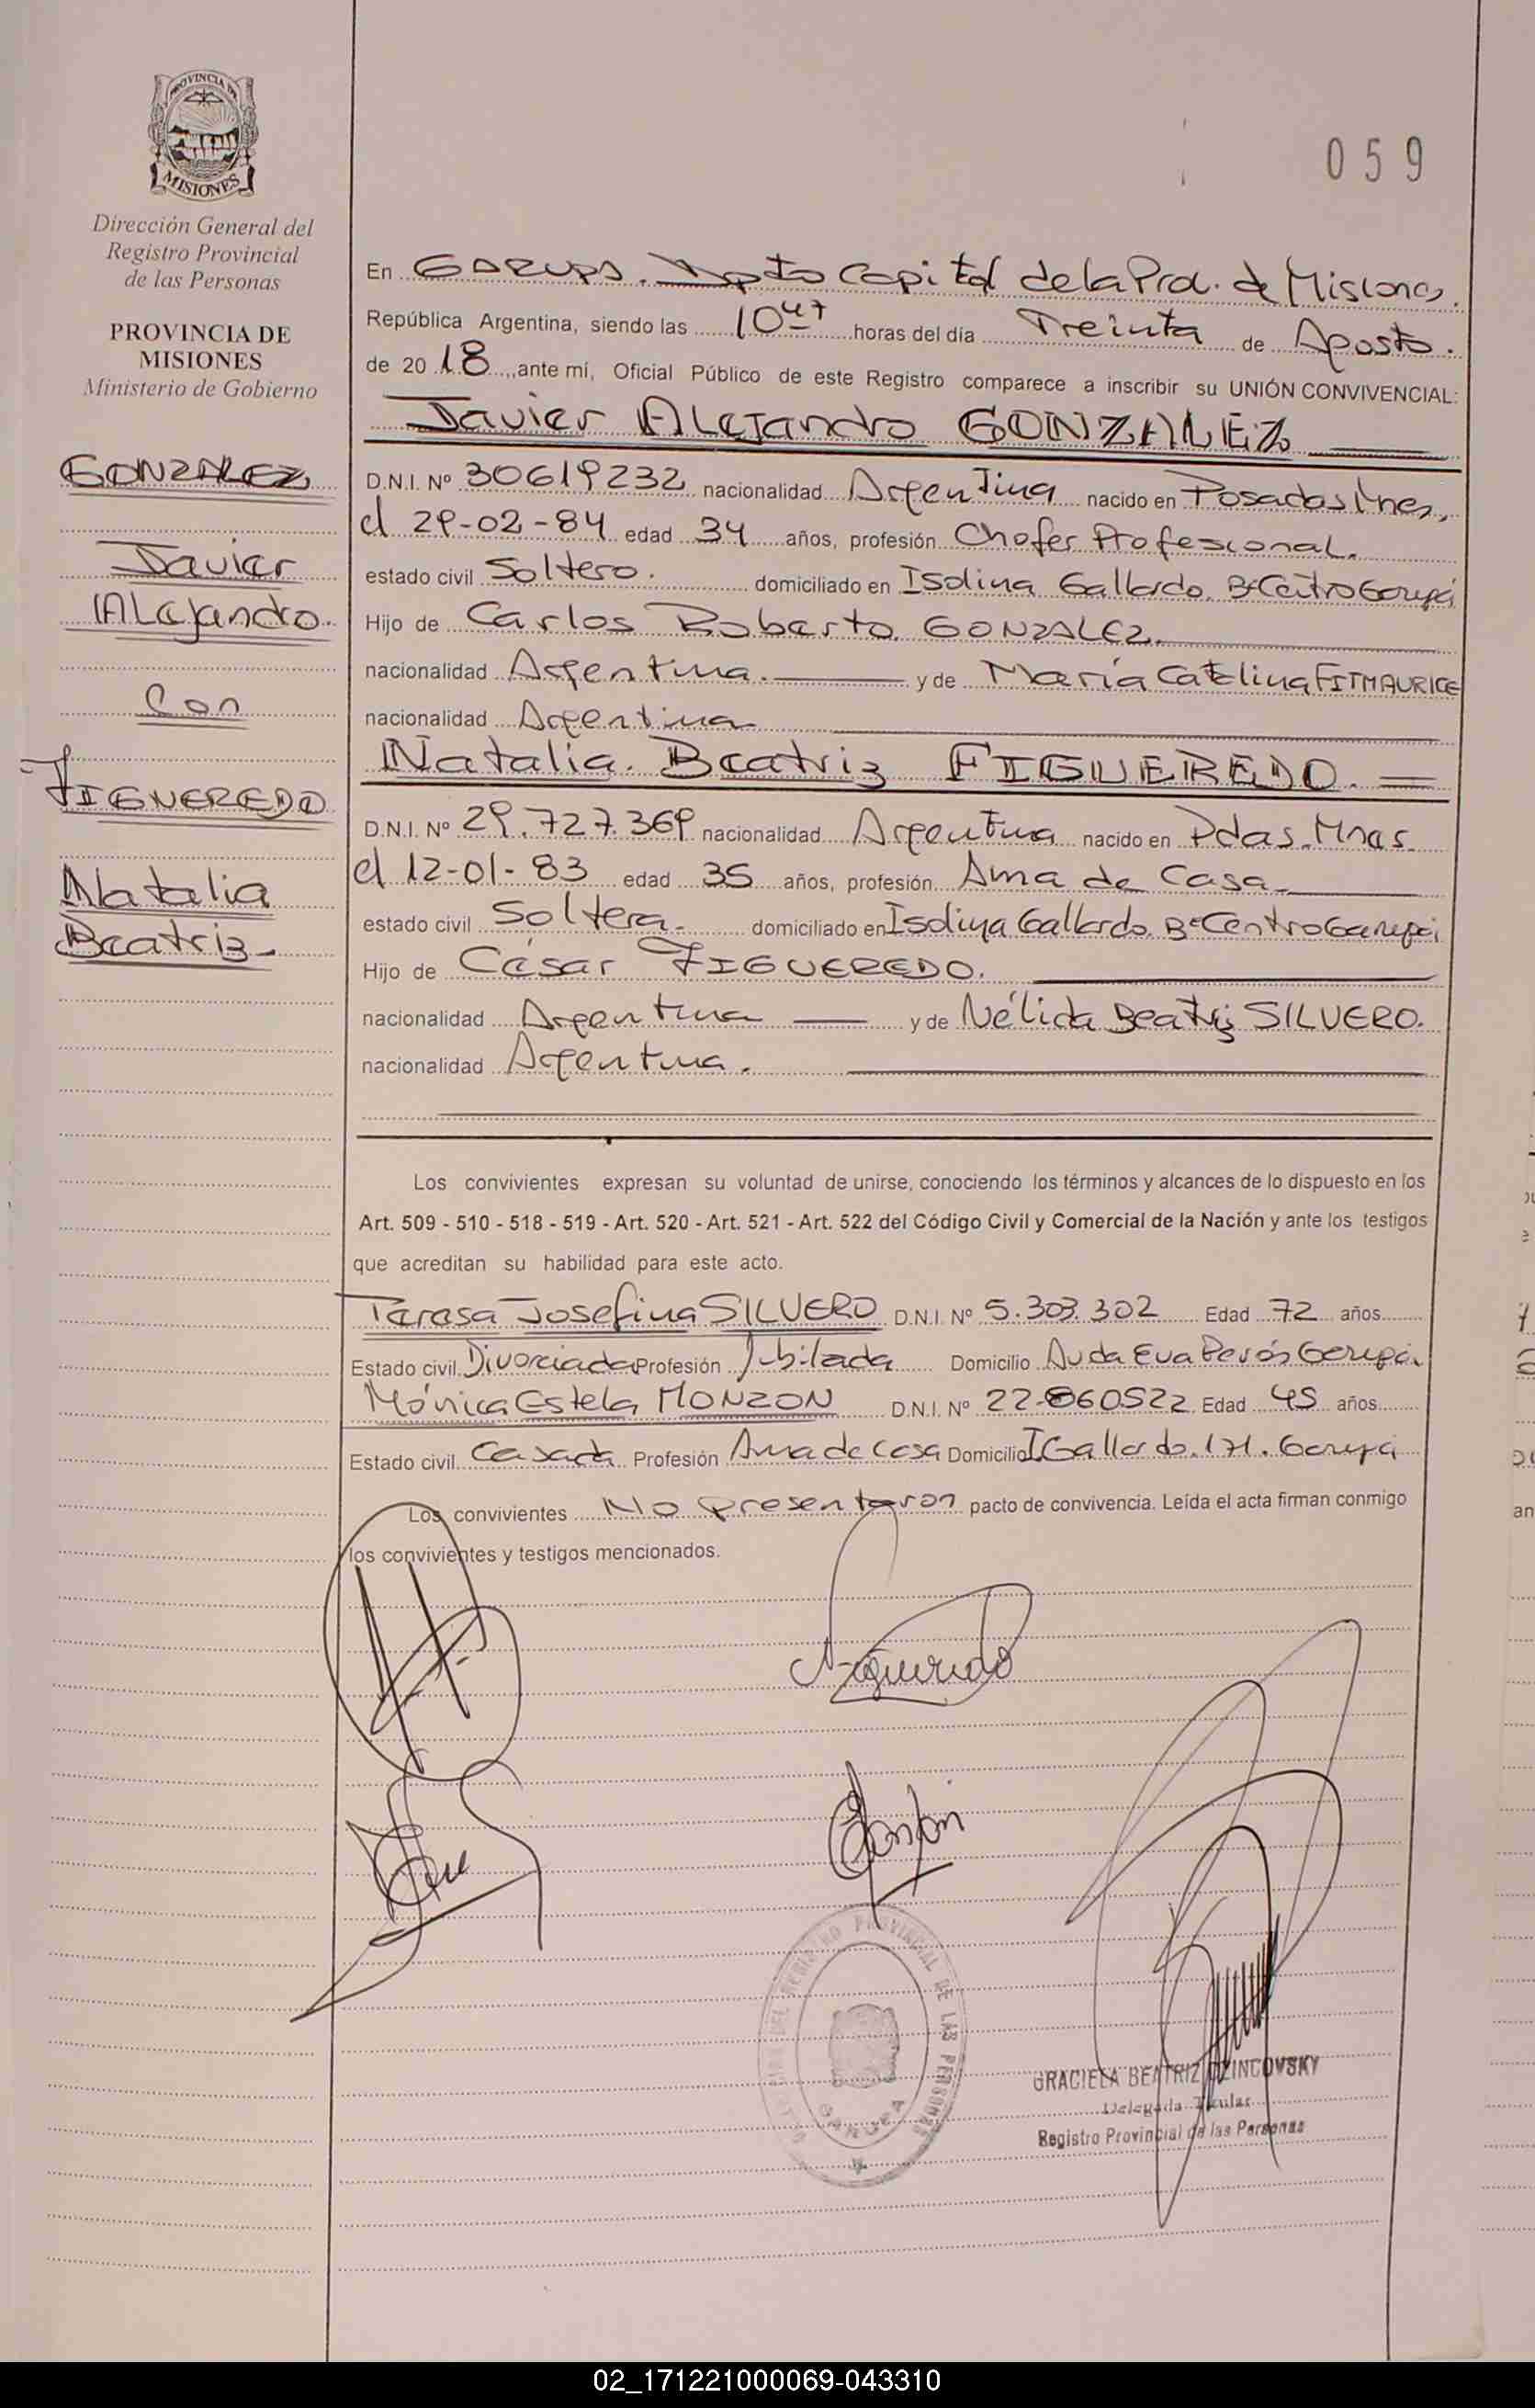 PROVINCIA DE
MISIONES
Dirección General del
Registro Provincial
de las Personas
PROVINCIA DE
MISIONES
Ministerio de Gobierno
GONZALEZ
Javier
Alejandro.
Con
FIGUEREDO
Natalia
Beatriz
059
En GARUPA. Dpto Capital de la Prov. de Misiones.
República Argentina, siendo las 10 47 horas del día Treinta de Agosto.
de 2018, ante mí, Oficial Público de este Registro comparece a inscribir su UNIÓN CONVIVENCIAL:
Javier Alejandro GONZALEZ
D.N.I. Nº 30619232 nacionalidad Argentina nacido en Posadas Mnes,
el 29-02-84 edad 34 años, profesión Chofer Profesional.
estado civil Soltero. domiciliado en Isolina Gallardo Bº Centro Garupá
Hijo de Carlos Roberto GONZALEZ.
nacionalidad Argentina. y de María Catalina FITMAURICE
nacionalidad Argentina
Natalia. Beatriz FIGUEREDO. =
D.N.I. Nº 29.727.369 nacionalidad Argentina nacido en Pdas. Mnes.
el 12-01-83 edad 35 años, profesión Ama de Casa
estado civil Soltera. domiciliado en Isolina Gallardo Bº Centro Garupá
Hijo de César FIGUEREDO.
nacionalidad Argentina y de Nélida Beatriz SILVERO.
nacionalidad Argentina.
Los convivientes expresan su voluntad de unirse, conociendo los términos y alcances de lo dispuesto en los
Art. 509 - 510 - 518 - 519 - Art. 520 - Art. 521 - Art. 522 del Código Civil y Comercial de la Nación y ante los testigos
que acreditan su habilidad para este acto.
Teresa Josefina SILVERO D.N.I. Nº 5.303.302 Edad 72 años
Estado civil Divorciada Profesión Jubilada Domicilio Avda Eva Perón Garupá.
Mónica Estela MONZON D.N.I. Nº 22-860522 Edad 45 años
Estado civil Casada Profesión Ama de Casa Domicilio I Gallardo. 171. Garupá
Los convivientes No presentaron pacto de convivencia. Leída el acta firman conmigo
los convivientes y testigos mencionados.
N Figueredo
REGISTRO PROVINCIAL DE LAS PERSONAS
GARUPA
GRACIELA BEATRIZ OZINCOVSKY
Delegada Titular
Registro Provincial de las Personas
02_171221000069-043310